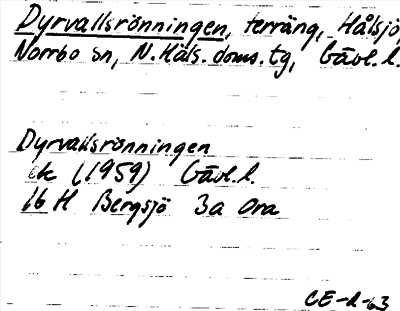 Dyrvallsrönningen, terräng, Hålsjö,
Norrbo sn, N. Häls. doms. tg, Gävl. l.
Dyrvallsrönningen
ek (1959) Gävl. l.
16 H Bergsjö 3a Ora
CE-l-63